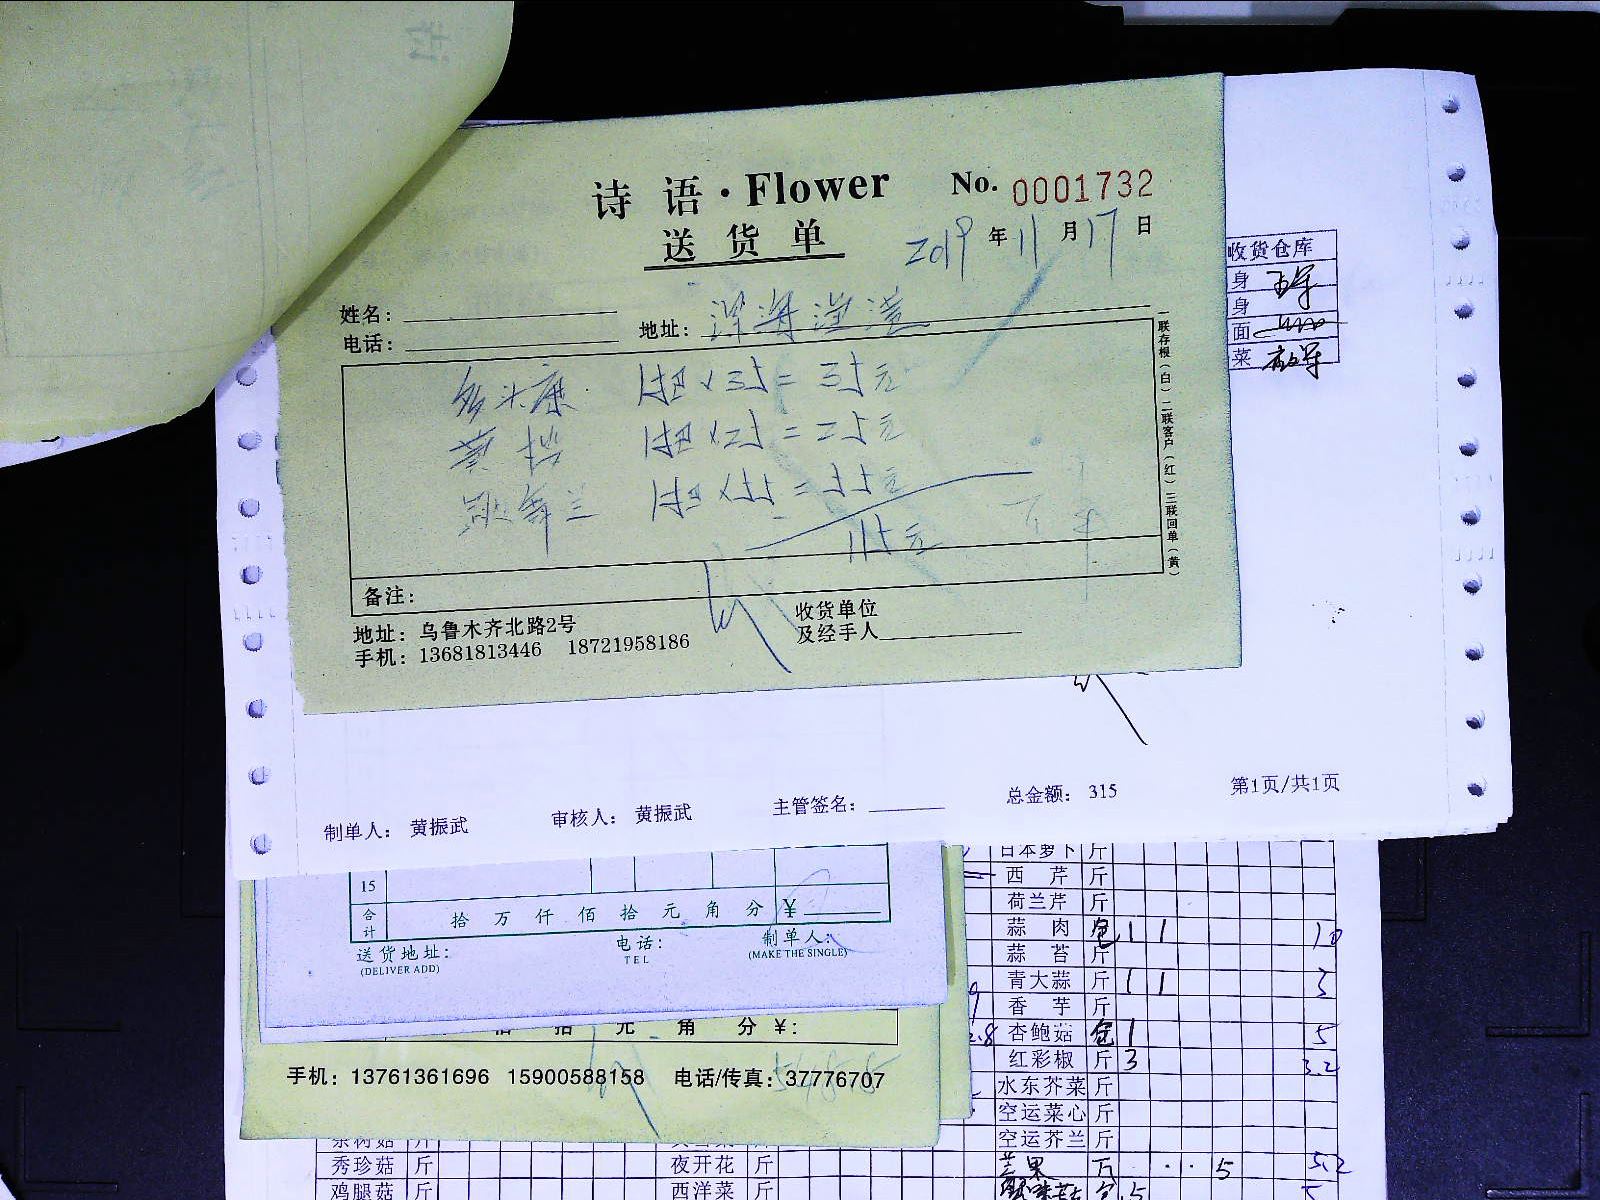 诗 语·Flower No. 0001732
送 货 单
2019 年 11 月 17 日
姓名：
电话：
地址：
多头康 1把×35=35元
黄 1把×25=25元
跳舞兰 1把×55=55元
115元
备注：
一联存根（白）二联客户（红）三联回单（黄）
地址：乌鲁木齐北路2号
手机：13681813446 18721958186
收货单位
及经手人
收货仓库
身
身
面
菜
制单人： 黄振武 审核人： 黄振武 主管签名： 总金额： 315 第1页/共1页
15
合计 拾 万 仟 佰 拾 元 角 分 ¥
送货地址：
(DELIVER ADD)
电话：
TEL
制单人：
(MAKE THE SINGLE)
佰 拾 元 角 分 ¥：
手机：13761361696 15900588158 电话/传真：37776707
日本萝卜 斤
西 芹 斤
荷兰芹 斤
蒜 肉 包 1 1 10
蒜 苔 斤
青大蒜 斤 1 1 3
香 芋 斤
杏鲍菇 包 1 5
红彩椒 斤 3 3.2
水东芥菜 斤
空运菜心 斤
空运芥兰 斤
茶树菇 斤
秀珍菇 斤 夜开花 斤
5 5.2
鸡腿菇 斤 西洋菜 斤